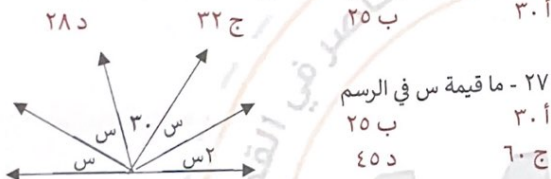 أ ٣٠ ب ٢٥
ج ٣٢ د ٢٨
٢٧ - ما قيمة س في الرسم
أ ٣٠ ب ٢٥
ج ٦٠ د ٤٥
س س ٣٠ س ٢س